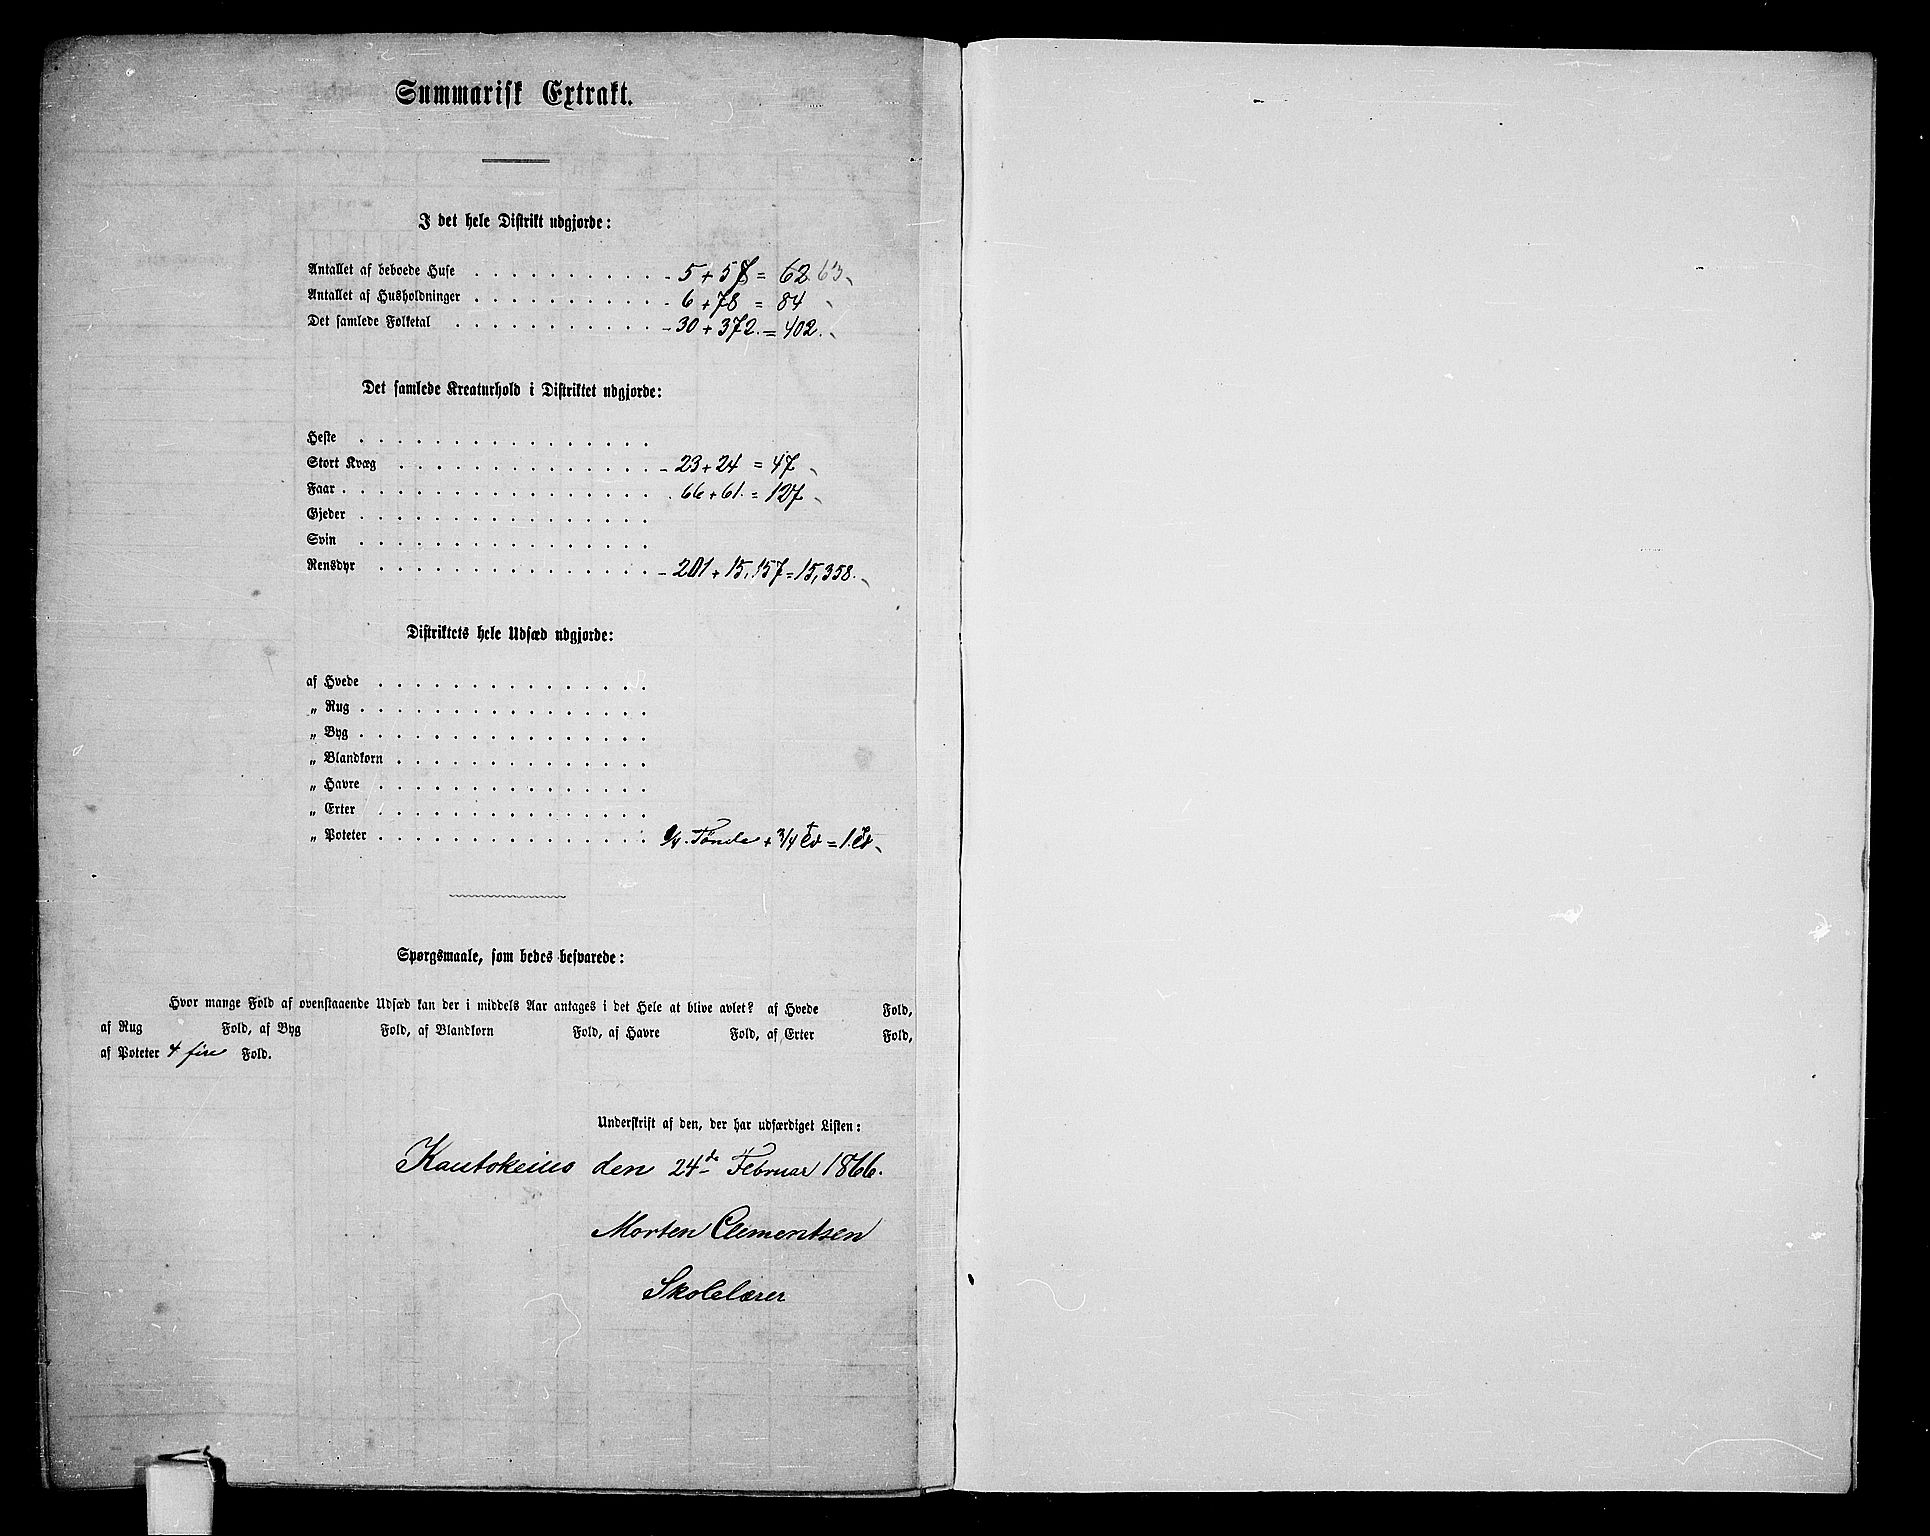 Summarisk Extrakt.
I det hele Distrikt udgjorde:
Antallet af beboede Huse . . . . . . . . . . . - 5 + 57 = 62 63
Antallet af Husholdninger . . . . . . . . . . - 6 + 78 = 84
Det samlede Folketal . . . . . . . . . . . - 30 + 372. = 402.
Det samlede Kreaturhold i Distriktet udgjorde:
Heste . . . . . . . . . . . . . . . .
Stort Kvæg . . . . . . . . . . . . . . - 23 + 24 = 47
Faar . . . . . . . . . . . . . . . . . 66 + 61. = 127
Gjeder . . . . . . . . . . . . . . . .
Svin . . . . . . . . . . . . . . . .
Rensdyr . . . . . . . . . . . . . . . - 201 + 15,157 = 15,358.
Distriktets hele Udsæd udgjorde:
af Hvede . . . . . . . . . . . . . . .
„ Rug . . . . . . . . . . . . . . . .
„ Byg . . . . . . . . . . . . . . . .
„ Blandkorn . . . . . . . . . . . . . .
„ Havre . . . . . . . . . . . . . . .
„ Erter . . . . . . . . . . . . . . .
„ Poteter . . . . . . . . . . . . . . . 1/4. Tønde + 3/4 = 1.
Spørgsmaale, som bedes besvarede:
Hvor mange Fold af ovenstaaende Udsæd kan der i middels Aar antages i det Hele at blive avlet? af Hvede Fold,
af Rug Fold, af Byg Fold, af Blandkorn Fold, af Havre Fold, af Erter Fold,
af Poteter 4 fire Fold.
Underskrift af den, der har udfærdiget Listen:
Kautokeino den 24de Februar 1866.
Morten Clementsen
Skolelærer